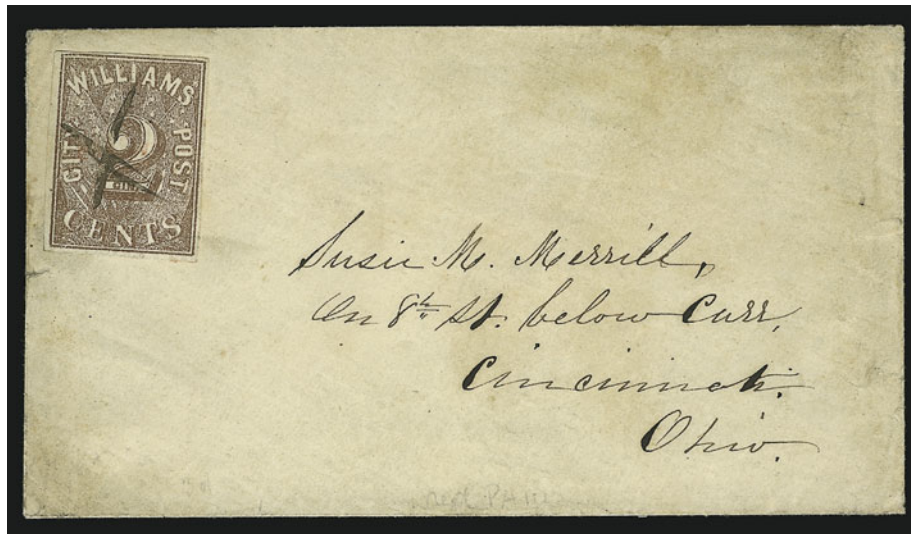 WILLIAMS'
CITY POST
2
CENTS
Susie M. Merrill,
On 8th St. below Carr,
Cincinnati.
Ohio.